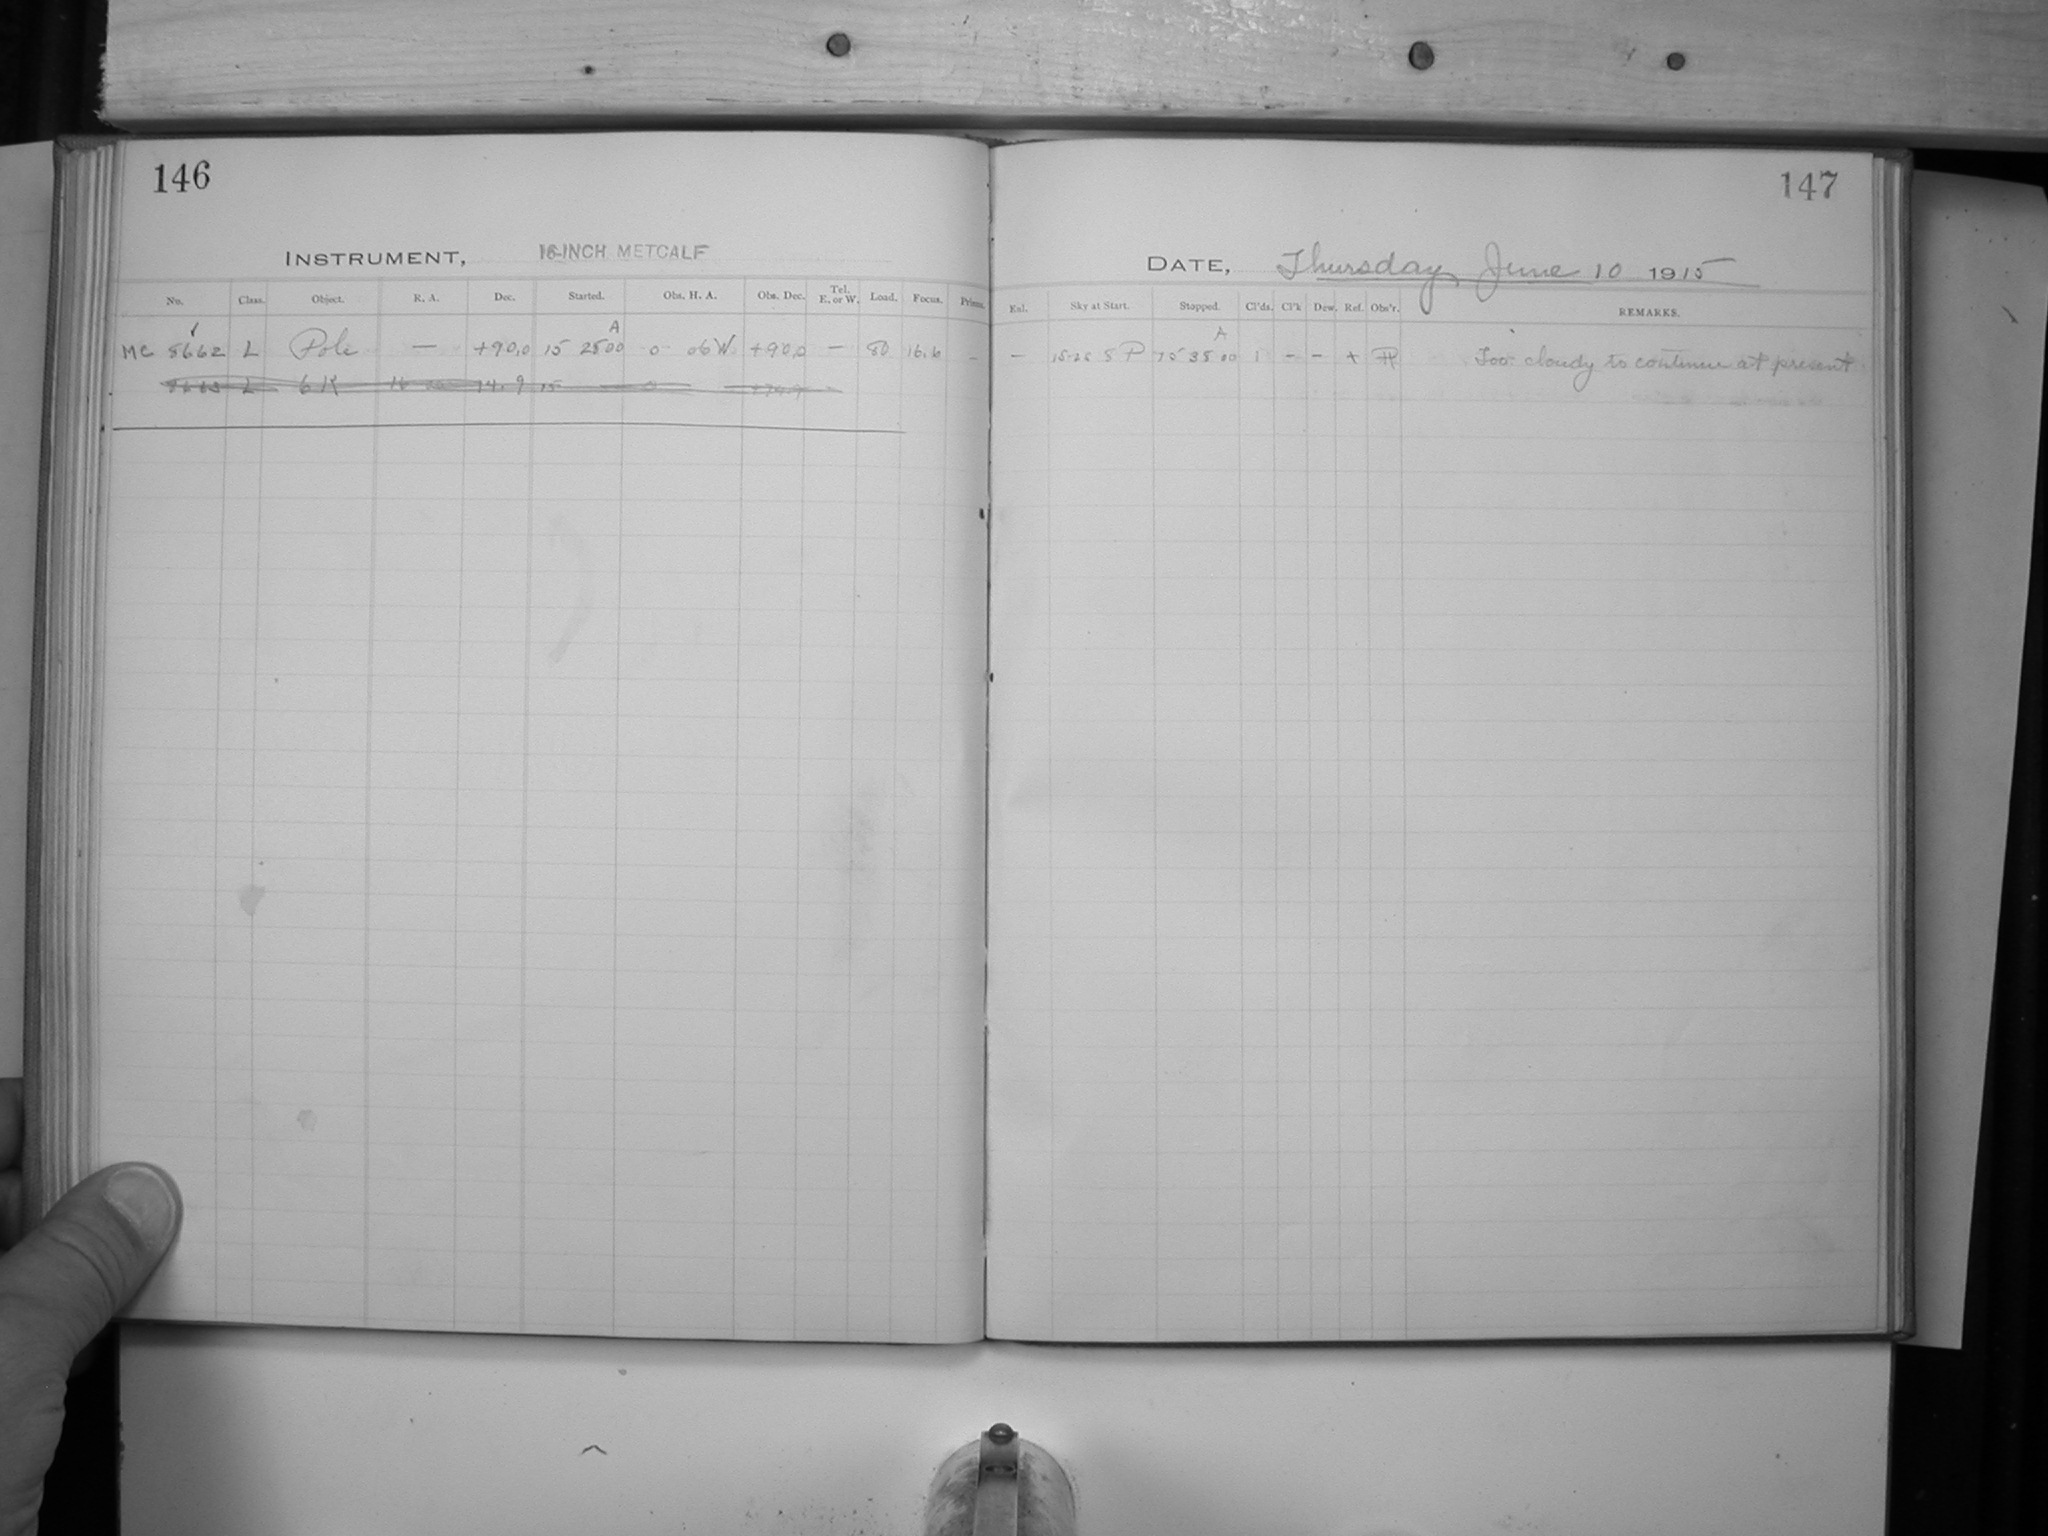 146
INSTRUMENT, 16-INCH METCALF
No. Class. Object. R. A. Dec. Started. Obs. H. A. Obs. Dec. Tel. E. or W. Load. Focus. Prisms.
A
MC 8662 L Pole — +90.0 15 28 00 0 06 W +90.0 — 80 16.6 –
L 6K 14.9 15 0
147
DATE, Thursday June 10 1915
Enl. Sky at Start. Stopped. Cl'ds. Cl'k Dew. Ref. Obs'r. REMARKS.
A
— 15 28 5 P 15 38 00 1 – – + Too cloudy to continue at present